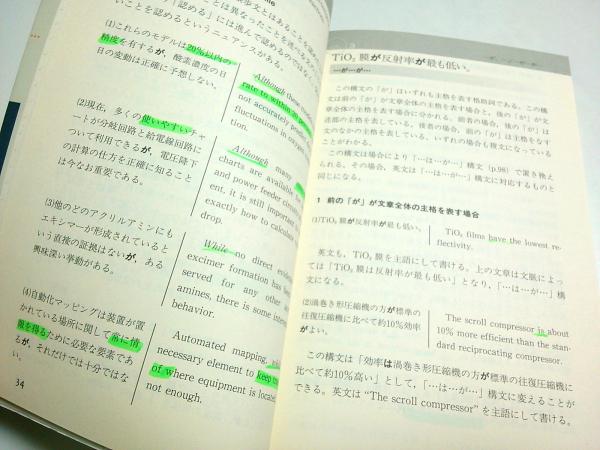 いことを認めるというニュアンスがある。
(1)これらのモデルは20％以内の
精度を有するが，酸素濃度の日
日の変動は正確に予想しない。
Although these
rate to within 20
not accurately
fluctuations in
(2)現在，多くの使いやすいチャ
ートが分岐回路と給電線回路に
ついて利用できるが，電圧降下
の計算の仕方を正確に知ること
は今なお重要である。
Although many
charts are available for
and power feeder circuits
ent, it is still important
exactly how to calculate
drop.
(3)他のどのアクリルアミンにも
エキシマーが形成されていると
いう直接の証拠はないが，ある
興味深い挙動がある。
While no direct
excimer formation has
served for any other
amines, there is some
behavior.
(4)自動化マッピングは装置が置
かれている場所に関して常に情
報を得るために必要な要素であ
るが，それだけでは十分ではな
い。
Automated mapping,
necessary element to keep
of where equipment is
not enough.
34
TiO₂膜が反射率が最も低い。
…が…が…
この構文の「が」はいずれも主格を表す格助詞である。この構
文は前の「が」が文章全体の主格を表す場合と，後の「が」が文
章全体の主格を表す場合に分かれる。前者の場合，後の「が」は
述部の主格を表している。後者の場合，前の「が」は主格をなす
文のなかの主格を表している。いずれの場合も複文になっている
ことがわかる。
この構文は場合により「…は…が…」構文(p.98)で置き換え
られる。その場合，英文は「…は…が…」構文に対応するものと
同じになる。
1 前の「が」が文章全体の主格を表す場合
(1)TiO₂膜が反射率が最も低い。
TiO₂ films have the lowest re-
flectivity.
英文も，TiO₂膜を主語にして書ける。上の文章は文脈によっ
ては「TiO₂膜は反射率が最も低い」となり，「…は…が…」構
文になる。
(2)渦巻き形圧縮機の方が標準の
往復圧縮機に比べて約10％効率
がよい。
The scroll compressor is about
10% more efficient than the stan-
dard reciprocating compressor.
この構文は「効率は渦巻き形圧縮機の方が標準の往復圧縮機に
比べて約10％高い」として，「…は…が…」構文に変えることが
できる。英文は“The scroll compressor”を主語にして書ける。